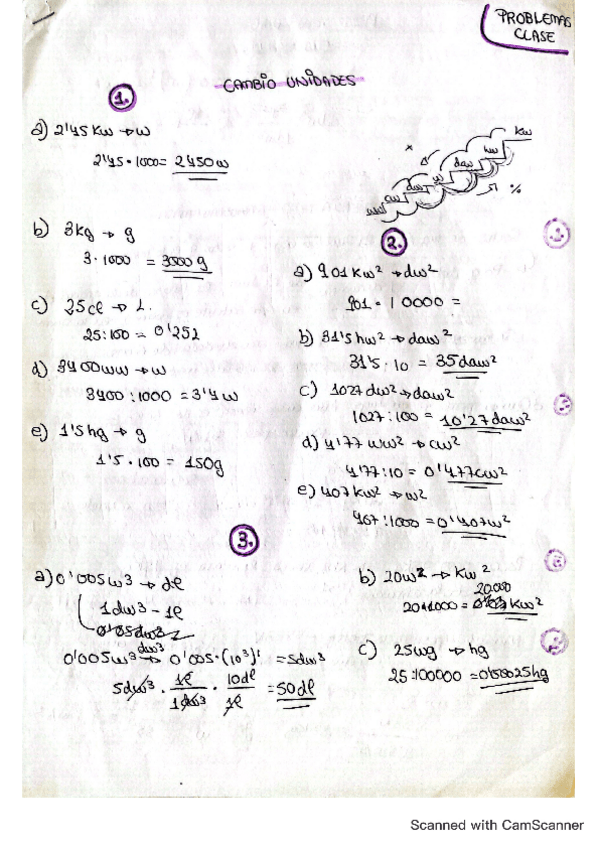 PROBLEMAS
CLASE
CAMBIO UNIDADES
1.
a) 2'45 Km → m
2'45 · 1000 = 2450m
b) 3kg → g
3 · 1000 = 3000 g
c) 25cl → L
25:100 = 0'25l
d) 3400mm → m
3400 : 1000 = 3'4m
e) 1'5hg → g
1'5 · 100 = 150g
km
hm
dam
m
dm
cm
mm
2.
a) 901 Km² → dm²
901 · 10000 =
b) 31'5 hm² → dam²
31'5 : 10 = 35dam²
c) 1027 dm² → dam²
1027 : 100 = 10'27dam²
d) 4'77 mm² → cm²
4'77 : 10 = 0'477cm²
e) 407Km² → m²
407 : 1000 = 0'407m²
3.
a) 0'005m3 → dl
1dm3 - 1l
0'005m3 → dm3 0'005 · (10³)¹ = 5dm3
5dm3 · 1l / 1dm3 · 10dl / 1l = 50dl
b) 20m² → Km²
20.000
20·1000 = Km²
c) 25mg → hg
25:100000 = 0'00025hg
Scanned with CamScanner